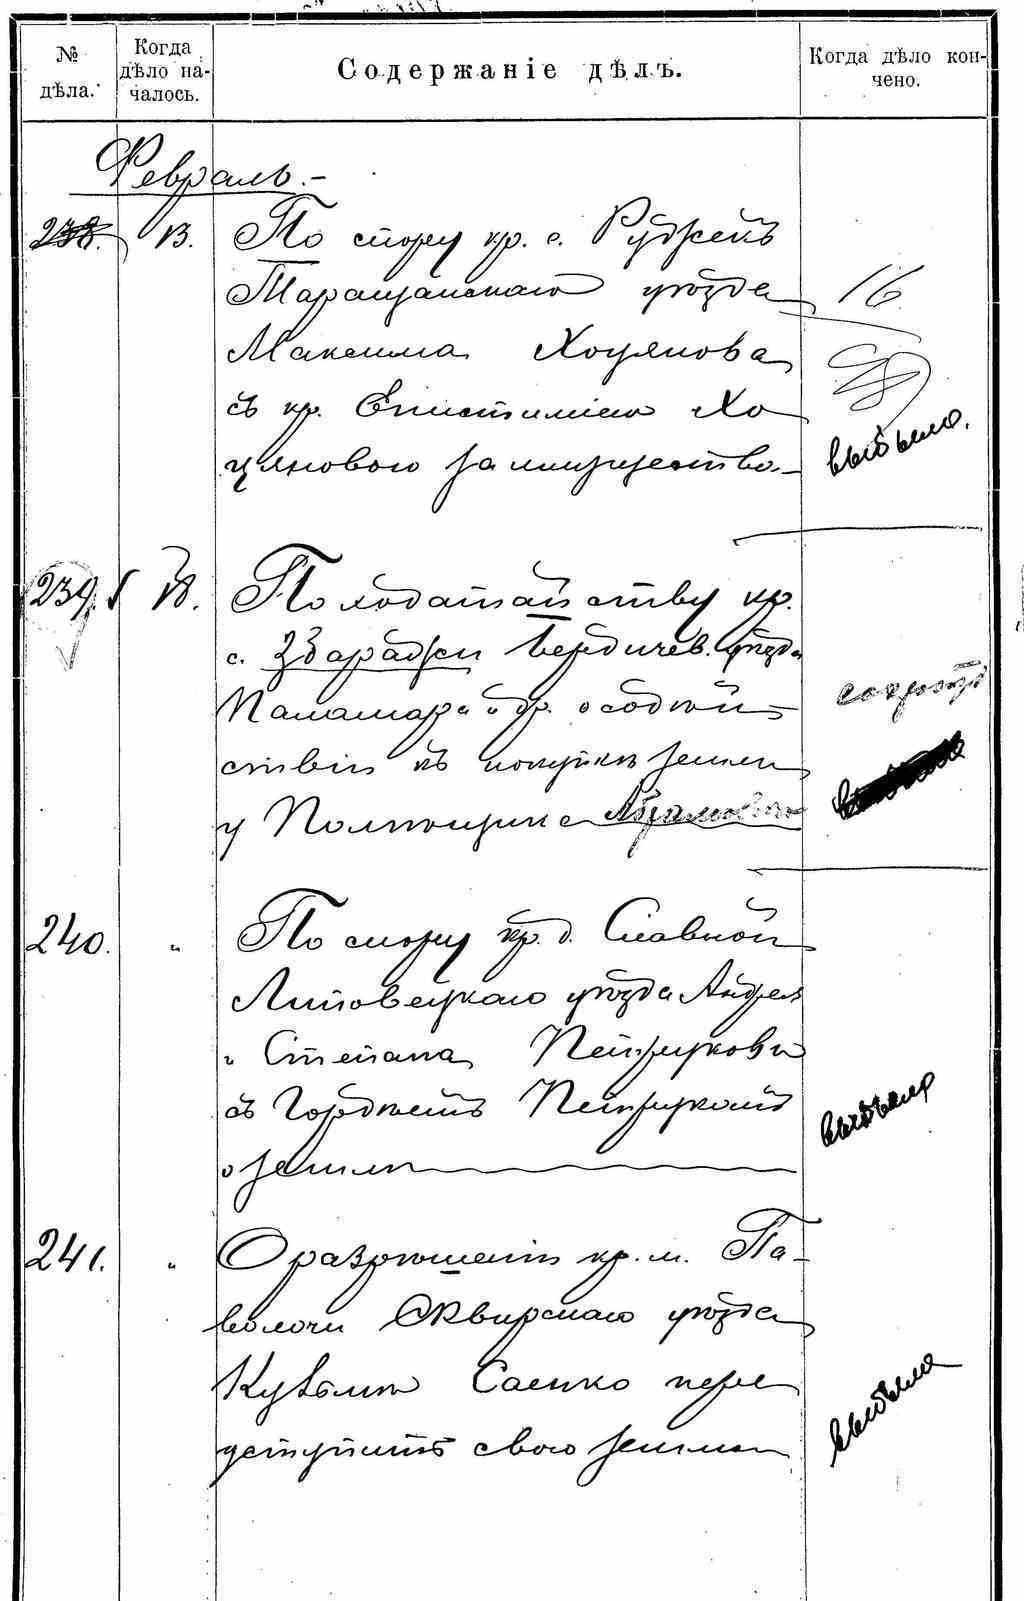 № дѣла.
Когда дѣло на-
чалось.
Содержаніе дѣлъ.
Когда дѣло кон-
чено.
Февраль.-
238. 13. По спору кр. с. Руджекъ
Таращанскаго уѣзда 16
Максима Хоцянова
съ кр. Епистиміею Хо
цяновою за имущество.- выбыло.
239. 18. По ходатайству кр.
с. Збаражи Бердичев. уѣзда
Паламаря и др. о содѣй-
ствіи къ покупкѣ земли
у Помѣщика
240. " По спору кр. д. Славной
Липовецкаго уѣзда Андрея
и Степана Петруковы
съ Гордѣемъ Петрукомъ
о землѣ выбыло
241. " О разрѣшеніи кр. м. Па-
волочи Сквирскаго уѣзда
Кузьмѣ Саенко пере
уступить свою землю выбыло